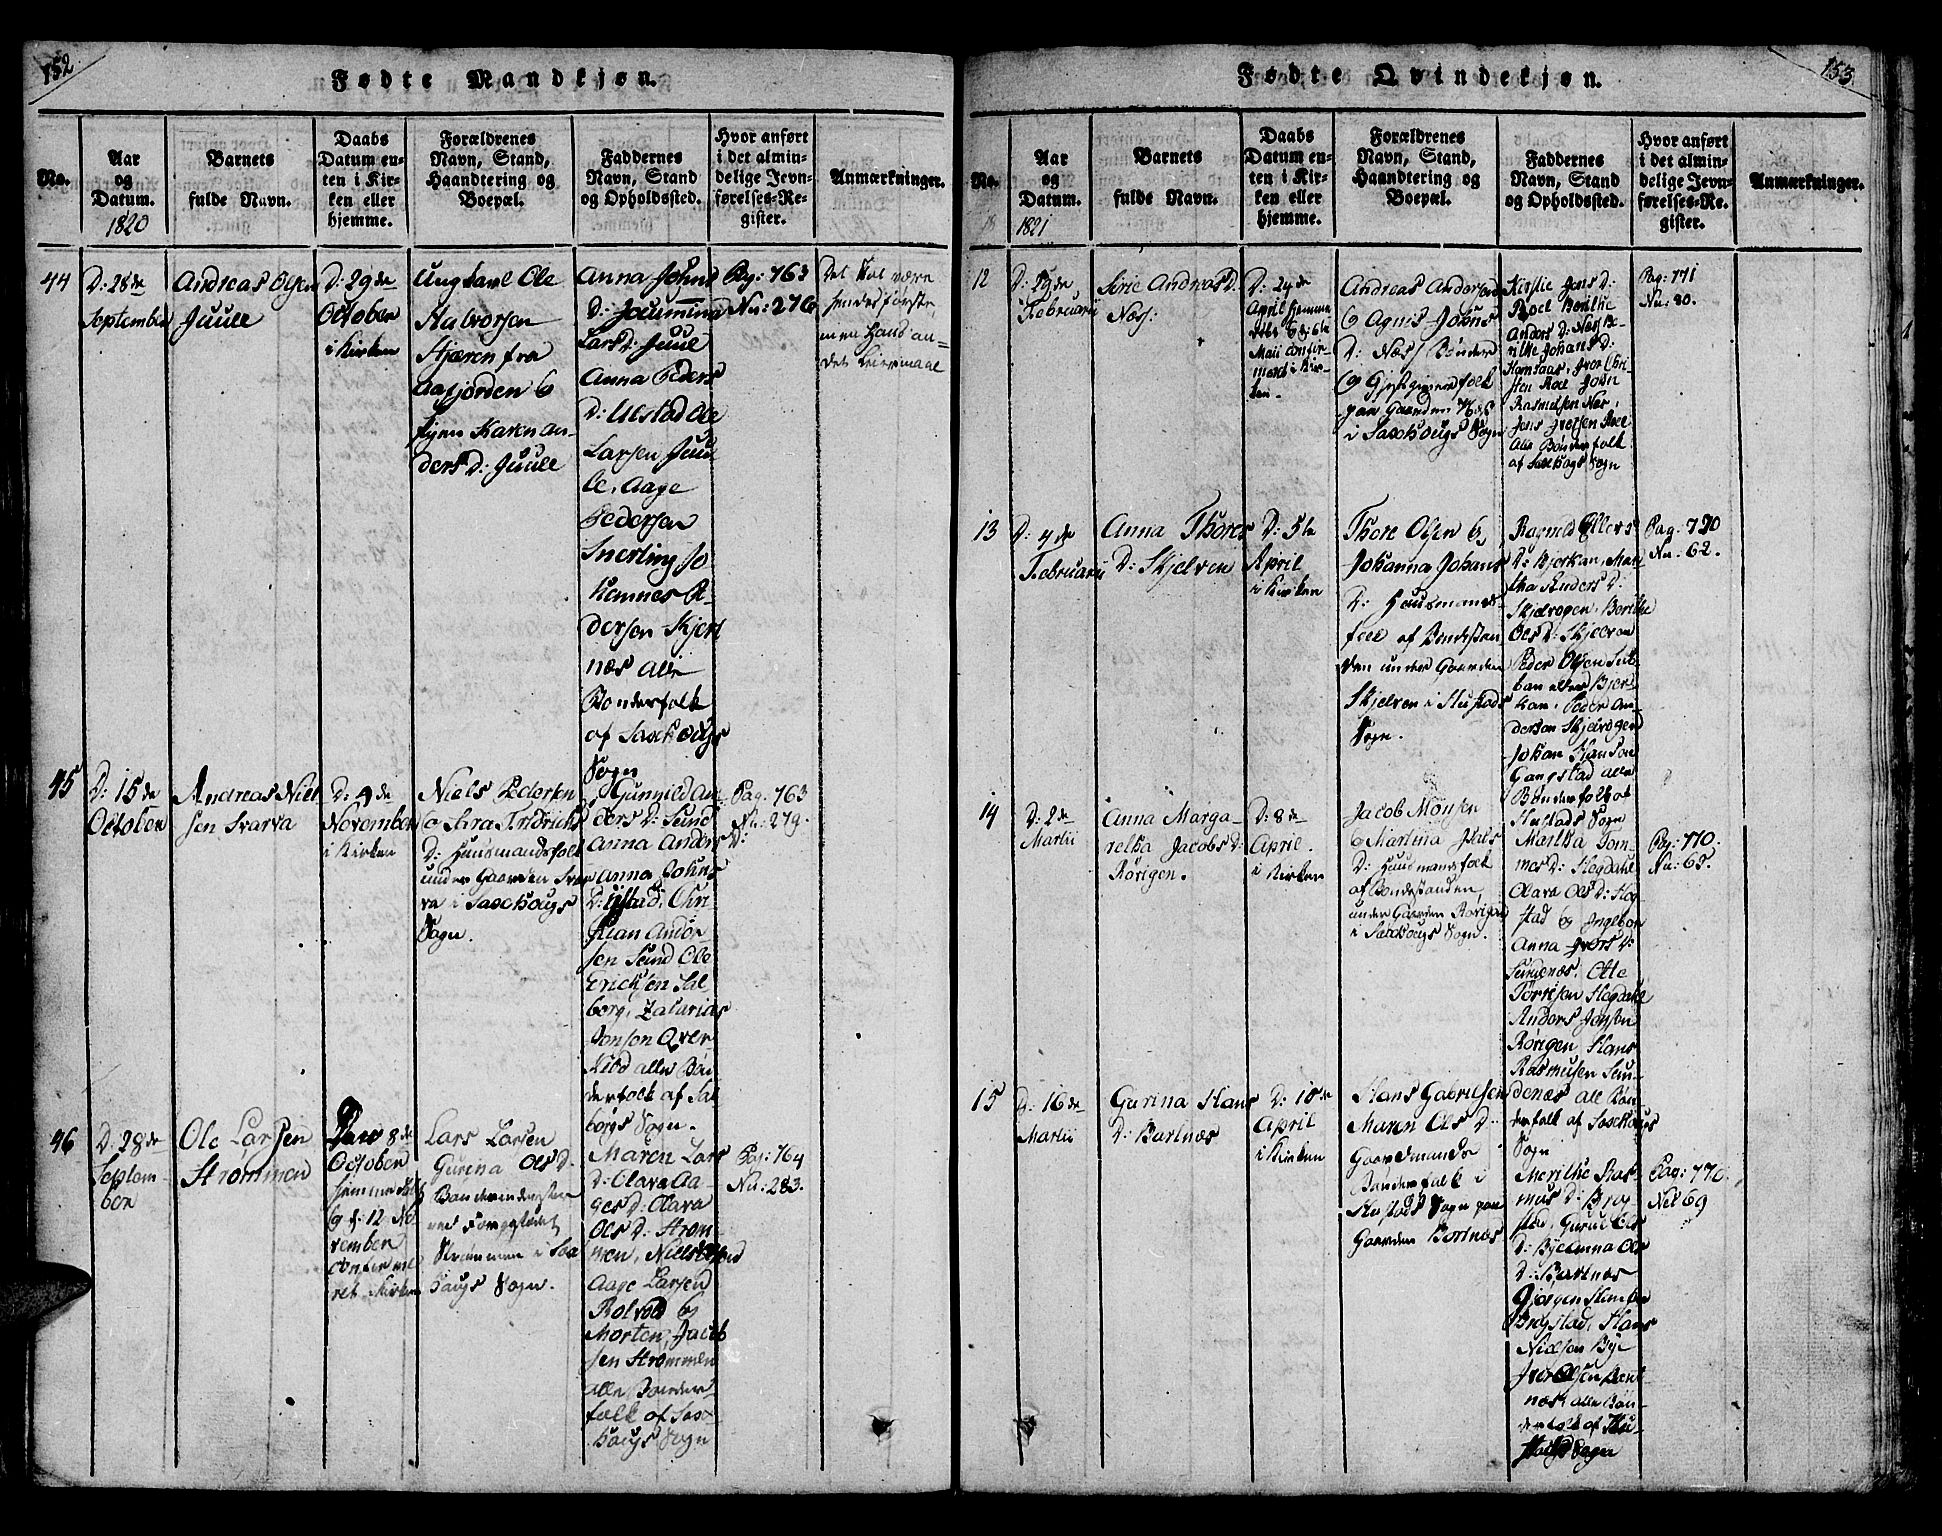 152
Fødte Mandkjøn.
No.
Aar
og
Datum.
1820
Barnets
fulde Navn.
Daabs
Datum en-
ten i Kir-
ken eller
hjemme.
Forældrenes
Navn, Stand,
Haandtering og
Boepæl.
Faddernes
Navn, Stand
og Opholdssted.
Hvor anført
i det almin-
delige Jevn-
førelses-Re-
gister.
Anmærkninger.
44
D: 28de
September
Andreas Olsen
Juule
D: 29de
October
i Kirken
Ungkarl Ole
Halvorsen
Stjæren fra
Aafjorden og
Pigen Karen An-
ders D: Juule
Anna Johns
D:
Lars D: Juul
Anna Peders
D: Ulstad Ole
Larsen Juu
le, Aage
Pedersen
Snerting Jo
hannes A-
dersen Kjer
næs alle
Bonderfolk
af Saxhougs
Sogn
Pag: 763
Nu: 276
Det skal være
hendes første,
men hans an-
det Leiermaal
45
D: 15de
October
Andreas Niel
sen Svarva
D: 4de
November
i Kirken
Niels Pedersen
og Sara Fridrichs
D: Huusmandsfolk
under Gaarden Svar
va i Saxhougs
Sogn.
Gunnild An
ders D: Sund
Anna Anders
D:
Anna Johns
D: Ystad, Chri-
stian Ander-
sen Sund Ole
Ericksen Sal-
berg, Zakarias
Jonson Qver-
kild alle Bøn
derfolk af Sal
bergs Sogn.
Pag. 763
Nu: 279.
46
D: 28de
Septem-
ber
Ole Larsen
Strømmen
Den 8de
October
hjemmedøbt
og d: 12 No
vember
confirme
ret i Kirken
Lars Larsen
Gurina Ols D:
Strømmen i Sax
hougs Sogn.
Maren Lars
D: Olava Aa-
ges D: Olava
Ols D: Strøm
men, Niels
Aage Larsen
Rolvold og
Morten Jacob
sen Strømmen
alle Bonder
folk af Sax-
hougs Sogn
Pag: 764
Nu: 283.
153
Fødte Qvindekjøn.
No.
Aar
og
Datum.
1821
Barnets
fulde Navn.
Daabs
Datum en-
ten i Kir-
ken eller
hjemme.
Forældrenes
Navn, Stand,
Haandtering og
Boepæl.
Faddernes
Navn, Stand
og Opholdssted.
Hvor anført
i det almin-
delige Jevn-
førelses-Re-
gister.
Anmærkninger.
12
Februarii
Sirie Andreas D.
Næs:
D: 24de
April hjemme
døbt og d: 6te
Maii confir-
mert i Kir-
ken.
Andreas Andersen
og Agnis Johns
D: Næs, Bønder
og Gjestgiverfolk
paa Gaarden Næs
i Saxhougs Sogn
Kirstie Jens D:
Roel Berithe
Anders D: Næs Be-
rithe Johans D:
Iver Chri-
sten Roel John
Rasmusen Næs,
Jens Iversen Roel
Alle Bønderfolk
af Saxhougs Sogn
Pag: 771
Nu: 80.
13
D: 4de
Februarii
Anna Thores
D: Skjelven
D: 5te
April
i Kirken
Thore Olsen og
Johanna Johans
D: Huusmands-
folk af Bondestan
den under Gaarden
Skjelven i Hustads
Sogn.
Ragnild Ellers
D: Bjerkan, Mar
tha Anders D:
Skjelvagen, Berithe
Ols D: Skjelven
Peder Olsen
Bjer
kan, Peder An
dersen Skjelvagen
Johan Hansen
Gangstad alle
Bønderfolk af
Hustads Sogn
Pag: 770
Nu: 62.
14
D: 2de
Martii
Anna Marga-
retha Jacobs D:
Rørigen.
D: 8de
April.
i Kirken
Jacob Monsen
og Martina Jens
D: Huusmandsfolk
af Bondestanden
under Gaarden Rørigen
i Saxhougs Sogn.
Martha Tom-
mes D: Hegdahl
Olava Ols D: Heg
stad og Ingeborg
Anna Ivers D:
Sundnæs, Ole
Torrisen Hegdahl
Anders Jensen
Rørigen Hans
Rasmusen Sun-
denæs alle Bøn-
derfolk af Saxhougs
Sogn
Pag: 770.
Nu: 65.
15
D: 16de
Martii
Gurina Hans
D: Bartnæs
D: 15de
April
i Kirken
Hans Gabrielsen
Maren Ols D:
Gaardmands
Bonderfolk i
Hustads Sogn paa
Gaarden Bartnæs
Merithe Ras-
mus D: Bryg
stad, Guruei Ols
D: Bye Anna Ols
D: Bartnæs
Brygstad, Hans
Nielsen Bye
Iver Olsen Bart
næs alle Bøn-
derfolk af Hu
stads Sogn
Pag: 770.
No: 69